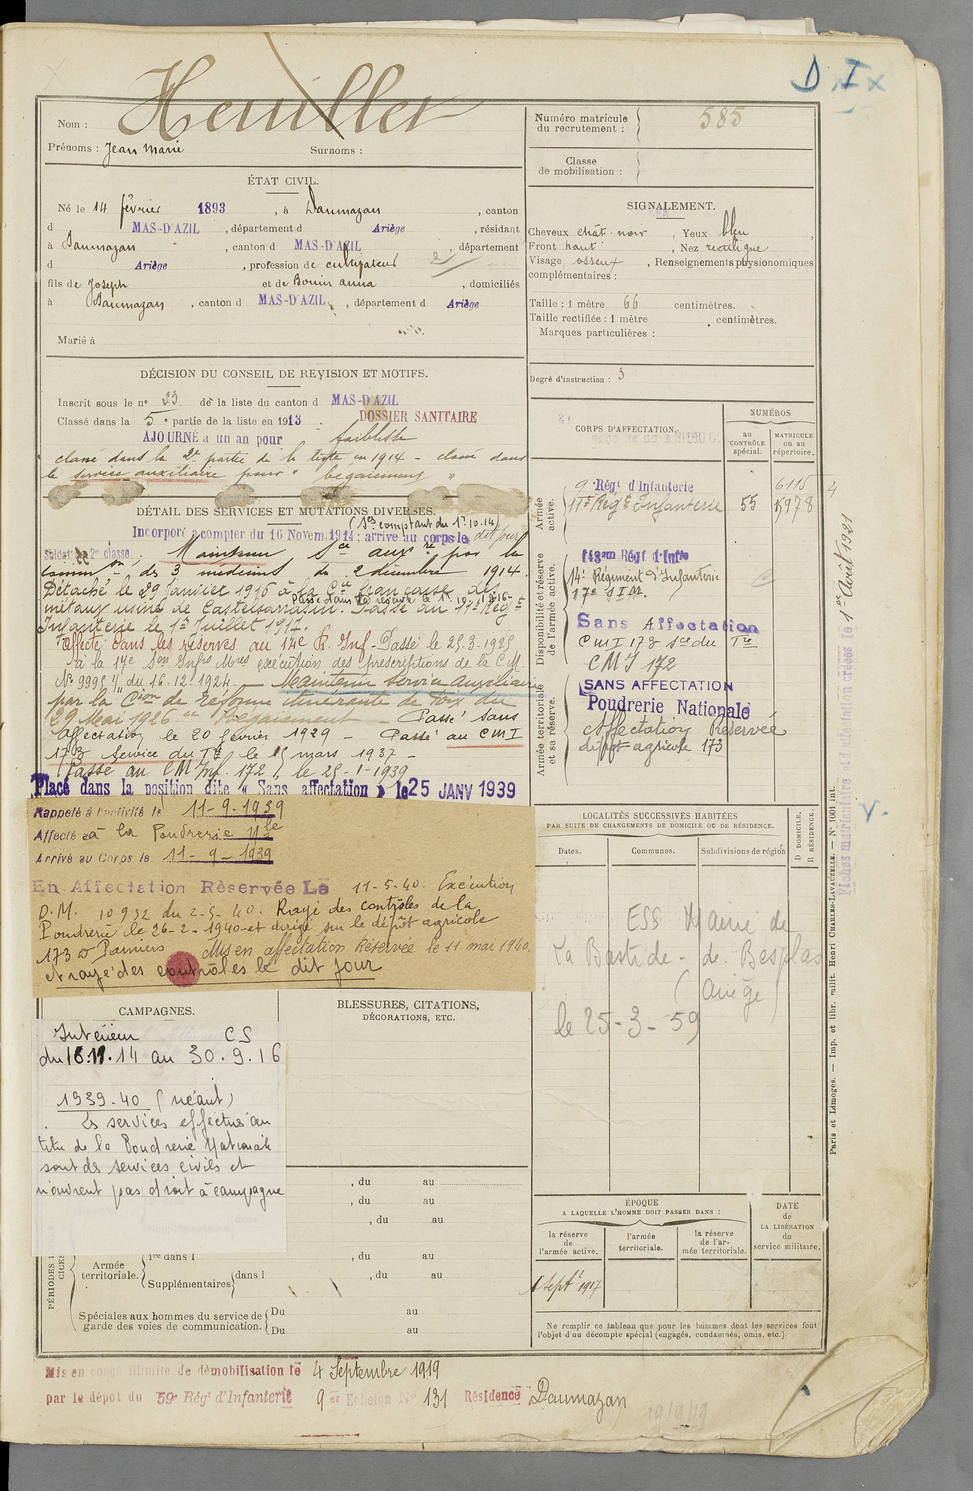 D I
Nom : Heuillet
Prénoms : Jean Marie Surnoms :
ÉTAT CIVIL.
Né le 14 février 1893, à Daumazan, canton
d MAS-D'AZIL, département d Ariège, résidant
à Daumazan, canton d MAS-D'AZIL, département
d Ariège, profession de cultivateur
fils de Joseph et de Bouin anna, domiciliés
à Daumazan, canton d MAS-D'AZIL, département d Ariège
Marié à
DÉCISION DU CONSEIL DE REVISION ET MOTIFS.
Inscrit sous le n° 23 de la liste du canton d MAS-D'AZIL
Classé dans la 5e partie de la liste en 1913 DOSSIER SANITAIRE
AJOURNÉ à un an pour faiblesse
classé dans la 2e partie de la liste en 1914 - classé dans
le service auxiliaire pour " bégaiement "
DÉTAIL DES SERVICES ET MUTATIONS DIVERSES.
(1er comptant du 1er.10.14)
Incorporé à compter du 16 Novem.1914; arrivé au corps le dit jour
soldat de 2e classe. Maintenu Sce auxre par la
common de 3 médecins du 2 décembre 1914.
Détaché le 29 Janvier 1916 à la Cie française des
métaux usine de Castelsarrasin. Passé au 11e Régt
Passé dans la réserve le 1-10-1916-
Infanterie le 1er Juillet 1917.
Affecté dans les réserves au 14e R. Inf - Passé le 25.3.1925
à la 17e Son Infrs Mres exécution des prescriptions de la C.M.
N° 9995 1/7 du 16.12.1924. — Maintenu service Auxiliaire
par la Cion de Réforme itinérante de Foix du
29 Mai 1926 Bégaiement — Passé sans
affectation le 20 février 1929 — Passé au CMI
173 Service du Tre le 15 mars 1937 -
Passé au CM Inf. 172, le 25-1-1939
Placé dans la position dite « Sans affectation » le 25 JANV 1939
Rappelé à l'activité le 11-9-1939
Affecté à la Poudrerie Nle
Arrivé au Corps le 11-9-1939
En Affectation Réservée Le 11-5-40. Exécution
D.M. 10932 du 2-5-40. Rayé des contrôles de la
Poudrerie le 26-2-1940 et dirigé sur le dépôt agricole
173 à Pamiers Mis en affectation Réservée le 11 mai 1940
et rayé des contrôles le dit jour
CAMPAGNES.
Intérieur CS
du 16.11.14 au 30.9.16
1939-40 (néant)
Les services effectués au
titre de la Poudrerie Nationale
sont des services civils et
n'ouvrent pas droit à campagne
BLESSURES, CITATIONS,
DÉCORATIONS, ETC.
, du au
, du au
, du au
PÉRIODES
Armée territoriale. 1re dans l , du au
Supplémentaires dans l , du au
Spéciales aux hommes du service de garde des voies de communication. Du au
Du au
Mis en congé illimité de démobilisation le 4 Septembre 1919
par le dépôt du 59e Régt d'Infanterie 9e Echelon N° 131 Résidence Daumazan
19/9/19
Numéro matricule du recrutement : 585
Classe de mobilisation :
SIGNALEMENT.
Cheveux chât. noir, Yeux bleu,
Front haut, Nez rectiligne
Visage osseux, Renseignements physionomiques
complémentaires :
Taille : 1 mètre 66 centimètres.
Taille rectifiée : 1 mètre , centimètres.
Marques particulières :
Degré d'instruction : 3
CORPS D'AFFECTATION.
NUMÉROS
au CONTRÔLE spécial.
MATRICULE ou au répertoire.
Armée active.
9e Régt d'Infanterie 6115
11e Régt Infanterie 55 5978
4
Disponibilité et réserve de l'armée active.
14e Régiment d'Infanterie
17e S I M.
Sans Affectation
CMI 173 Sce du Tre
CMI 172
Armée territoriale et sa réserve.
SANS AFFECTATION
Poudrerie Nationale
Affectation Réservée
dépôt agricole 173
LOCALITÉS SUCCESSIVES HABITÉES
PAR SUITE DE CHANGEMENTS DE DOMICILE OU DE RÉSIDENCE.
Dates. Communes. Subdivisions de région
D DOMICILE, R RÉSIDENCE.
ESS Mairie de
La Bastide - de Besplas
(Ariège)
le 25-3-59
ÉPOQUE
A LAQUELLE L'HOMME DOIT PASSER DANS :
la réserve de l'armée active.
l'armée territoriale.
la réserve de l'armée territoriale.
DATE de LA LIBÉRATION du service militaire.
1 Septe 1917
Ne remplir ce tableau que pour les hommes dont les services font
l'objet d'un décompte spécial (engagés, condamnés, omis, etc.).
Fiches matriculaire et d'affectation créées le 1er Août 1921
V.
Paris et Limoges. — Imp. et libr. milit. Henri CHARLES-LAVAUZELLE. — N° 1001 int.